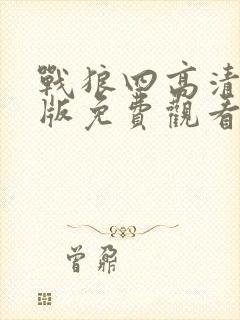 戰狼四高清
版免費觀看
曾鼐